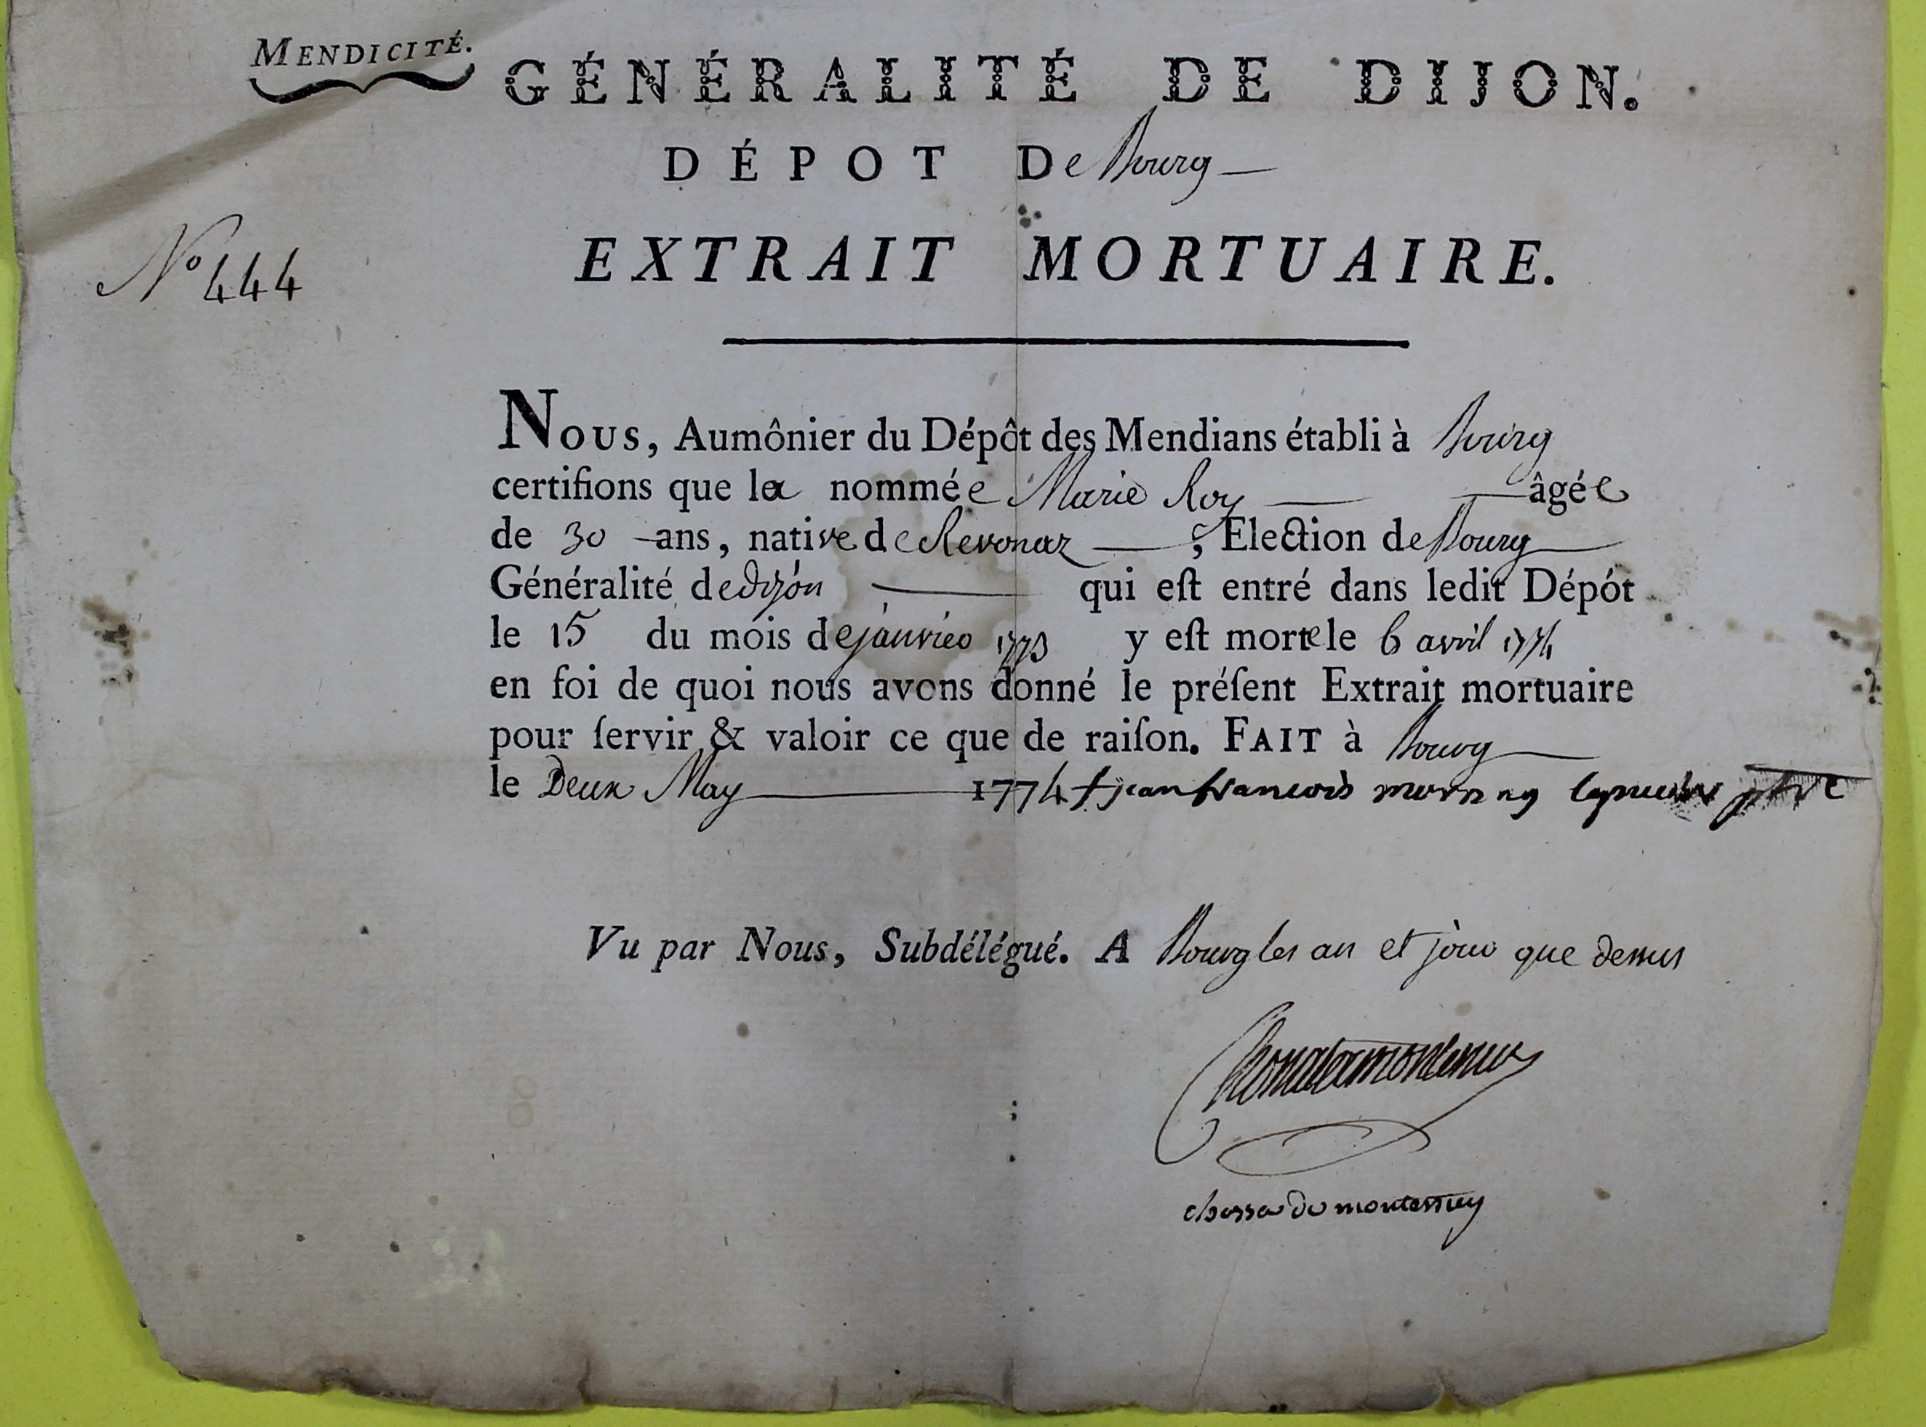 MENDICITÉ.
GÉNÉRALITÉ DE DIJON.
DÉPOT De Bourg
No 444
EXTRAIT MORTUAIRE.
NOUS, Aumônier du Dépôt des Mendians établi à Bourg
certifions que la nommée Marie Roy âgée
de 30 ans, native de Revonaz, Election de Bourg
Généralité de dijon qui est entré dans ledit Dépót
le 15 du mois de janvier 1773 y est morte le 6 avril 1774
en foi de quoi nous avons donné le présent Extrait mortuaire
pour servir & valoir ce que de raison. FAIT à Bourg
le Deux May 1774 jean francois
Vu par Nous, Subdélégué. A Bourg les an et jour que dessus
chossat de montessuy